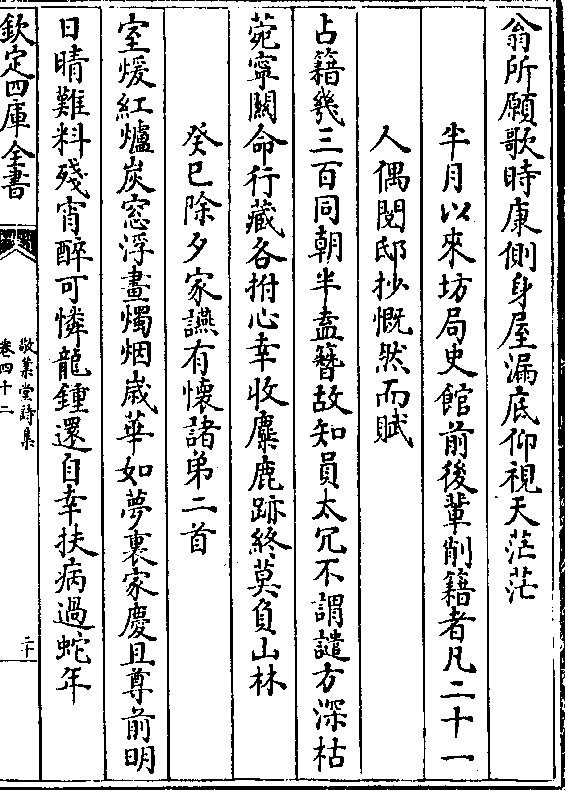 翁所願歌時康側身屋漏底仰視天茫茫
半月以來坊局史館前後輩削籍者凡二十一
人偶閱邸抄慨然而賦
占籍幾三百同朝半盍簪故知員太冗不謂譴方深枯
菀寜闗命行藏各拊心幸收麋鹿跡終莫負山林
癸巳除夕家讌有懷諸弟二首
室煖紅爐炭窓浮畫燭烟歳華如夢裏家慶且尊前明
日晴難料殘宵醉可憐龍鍾還自幸扶病過蛇年
欽定四庫全書
敬業堂詩集
卷四十二
二十